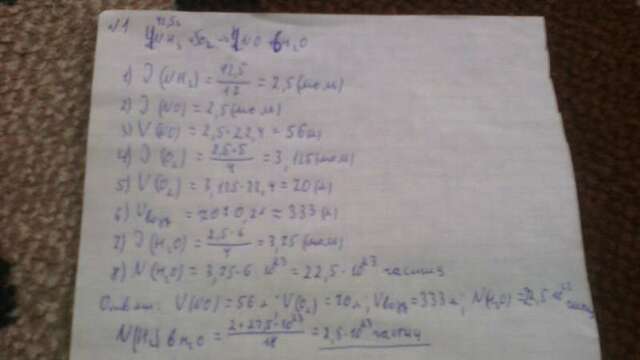 №1
4NH₃ + 5O₂ → 4NO + 6H₂O
1) ν(NH₃) = 42,5/17 = 2,5 (моль)
2) ν(NO) = 2,5 (моль)
3) V(NO) = 2,5 · 22,4 = 56 (л)
4) ν(O₂) = 2,5·5/4 = 3,125 (моль)
5) V(O₂) = 3,125 · 22,4 = 70 (л)
6) V возд = 70 : 0,21 = 333 (л)
7) ν(H₂O) = 2,5·6/4 = 3,75 (моль)
8) N(H₂O) = 3,75 · 6 · 10²³ = 22,5 · 10²³ частиц
Ответ: V(NO) = 56 л; V(O₂) = 70 л; V возд = 333 л; N(H₂O) = 22,5 · 10²³ частиц
N(H) в H₂O = = 2,5 · 10²³ частиц